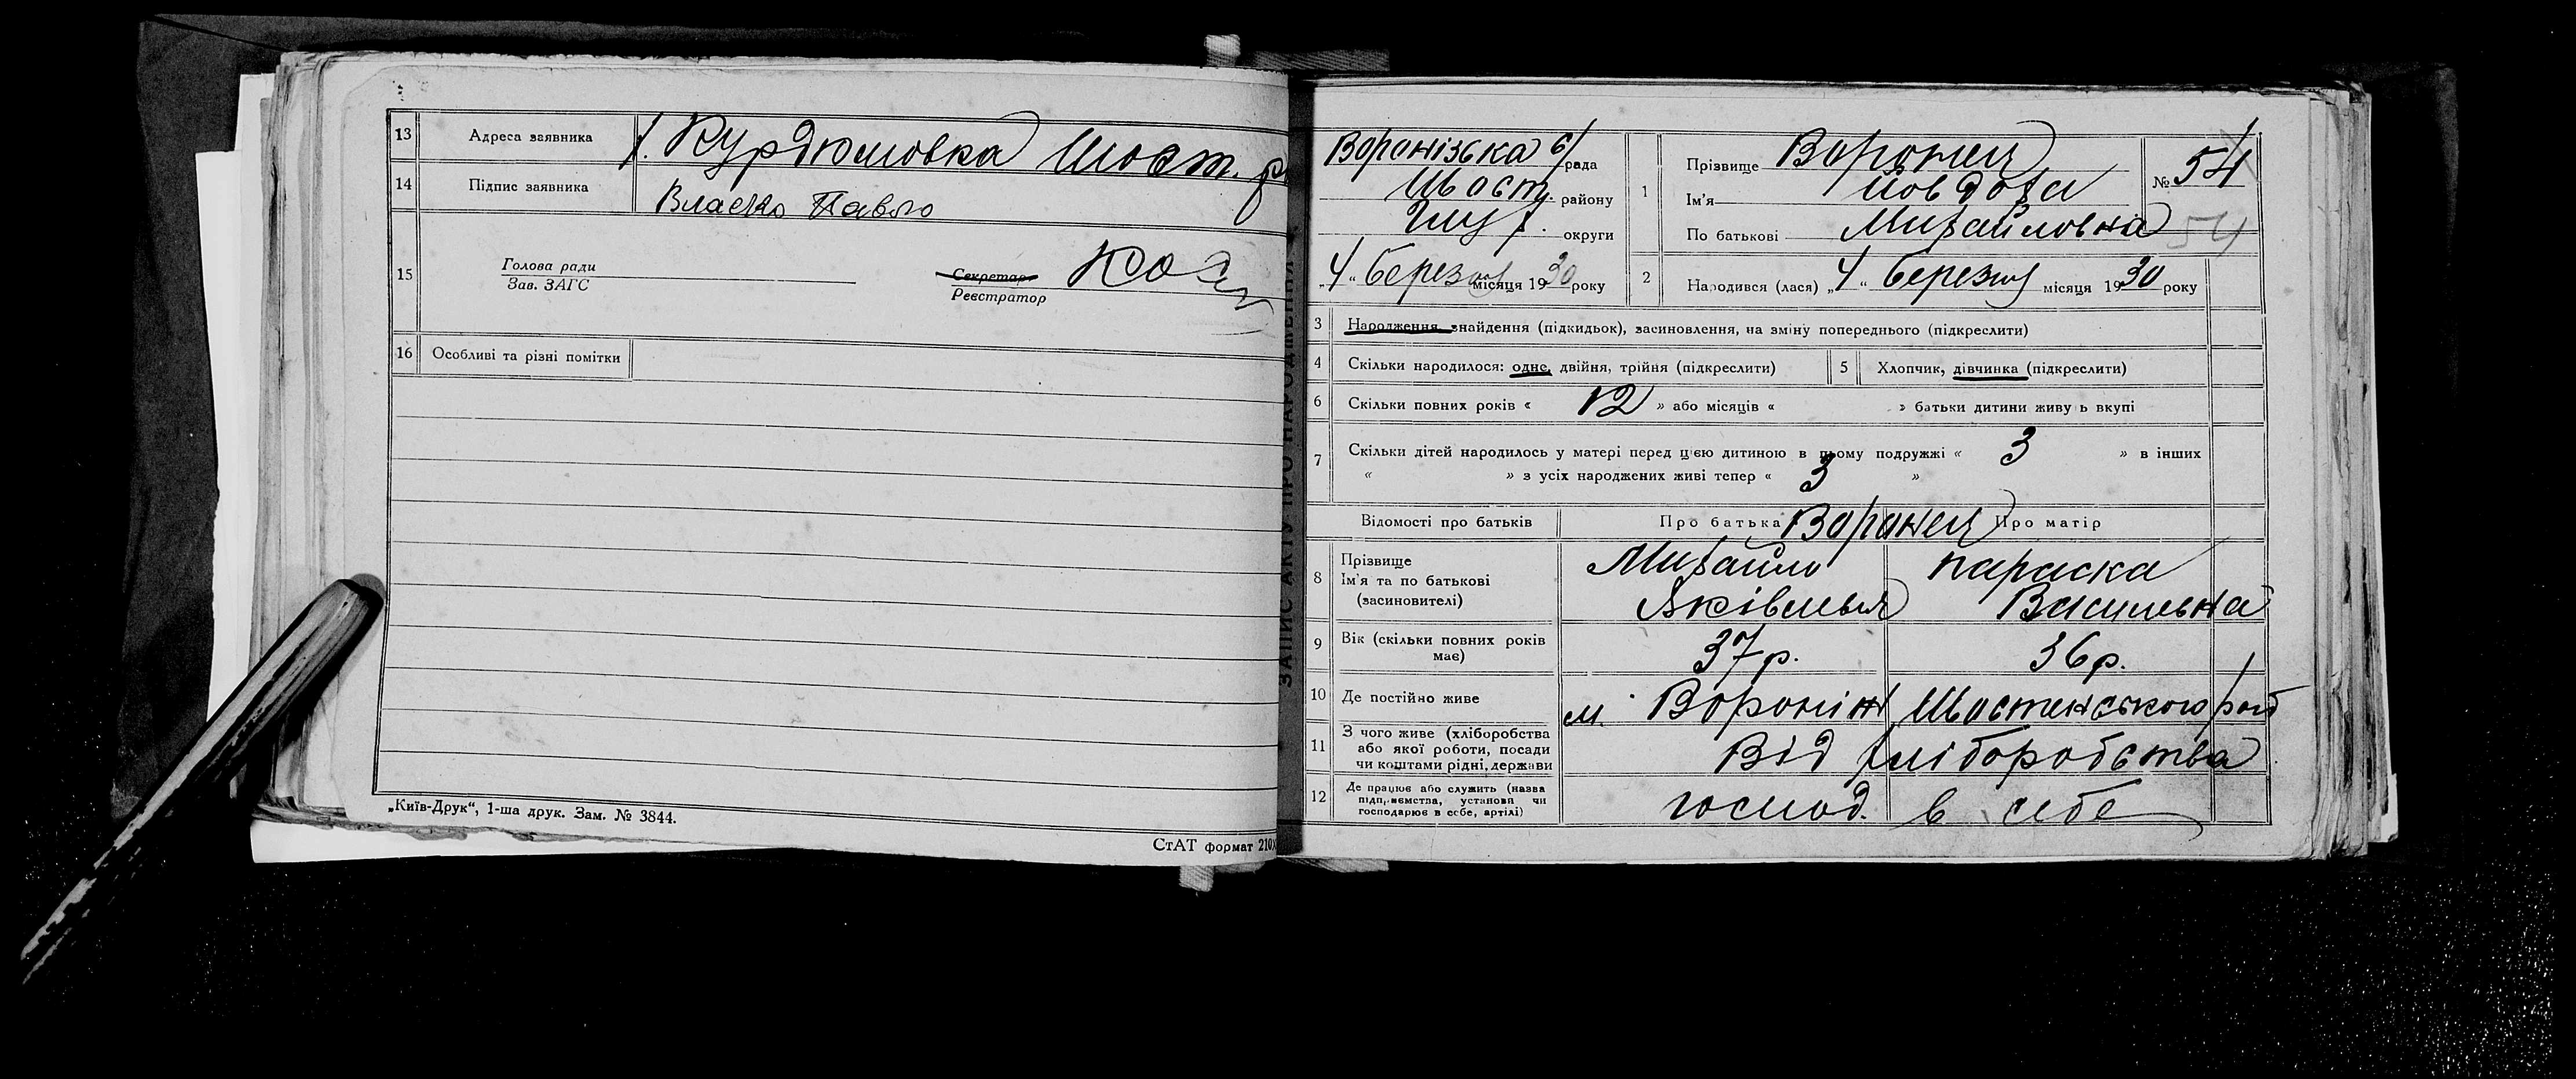 13 Адреса заявника х. Курдюмовка Шост. р
14 Підпис заявника Власко Павло
15 Голова ради
Зав. ЗАГС
Секретар
Реєстратор
16 Особливі та різні помітки
„Київ-Друк“, 1-ша друк. Зам. № 3844.
СтАТ формат 210
ЗАПИС АКТУ ПРО НАРОДЖЕННЯ
Воронізька с/рада
Шост. району
Глух. округи
„4“ березня місяця 1930 року
1 Прізвище Воронец
Ім'я Йовдоха
По батькові Михайловна
№ 54
54
2 Народився (лася) „4“ березня місяця 1930 року
3 Народження, знайдення (підкидьок), засиновлення, на зміну попереднього (підкреслити)
4 Скільки народилося: одне, двійня, трійня (підкреслити)
5 Хлопчик, дівчинка (підкреслити)
6 Скільки повних років « 12 » або місяців « » батьки дитини живуть вкупі
7 Скільки дітей народилось у матері перед цією дитиною в цьому подружжі « 3 » в інших
« » з усіх народжених живі тепер « 3 »
Відомості про батьків Про батька Воронец Про матір
8 Прізвище
Ім'я та по батькові
(засиновителі)
Михайло Параска
Яківлевич Васильевна
9 Вік (скільки повних років має) 37 р. 36 р.
10 Де постійно живе м. Вороніж, Шостенського рай
11 З чого живе (хліборобства
або якої роботи, посади
чи коштами рідні, держави
Від хліборобства
12 Де працює або служить (назва
підприємства, установи чи
господарює в себе, артілі)
господ. в себе